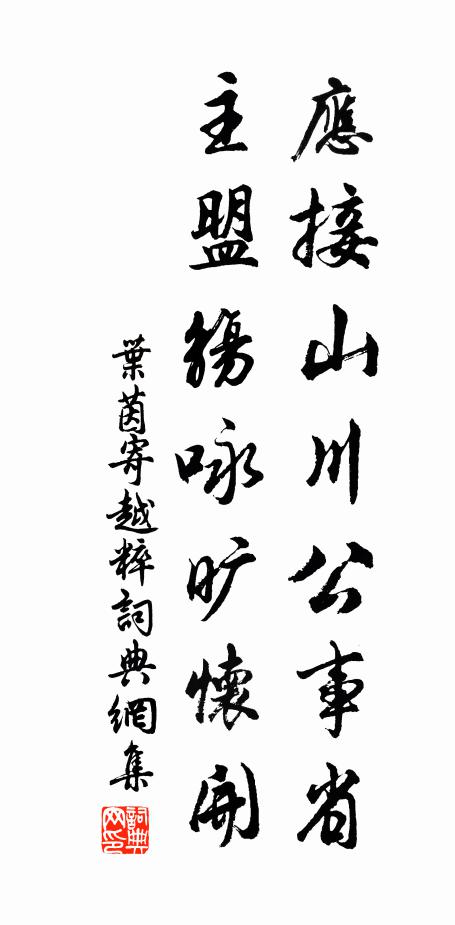 應接山川公事省
主盟觴咏旷懷開
葉茵寄越粹詞典網集
詞典网印